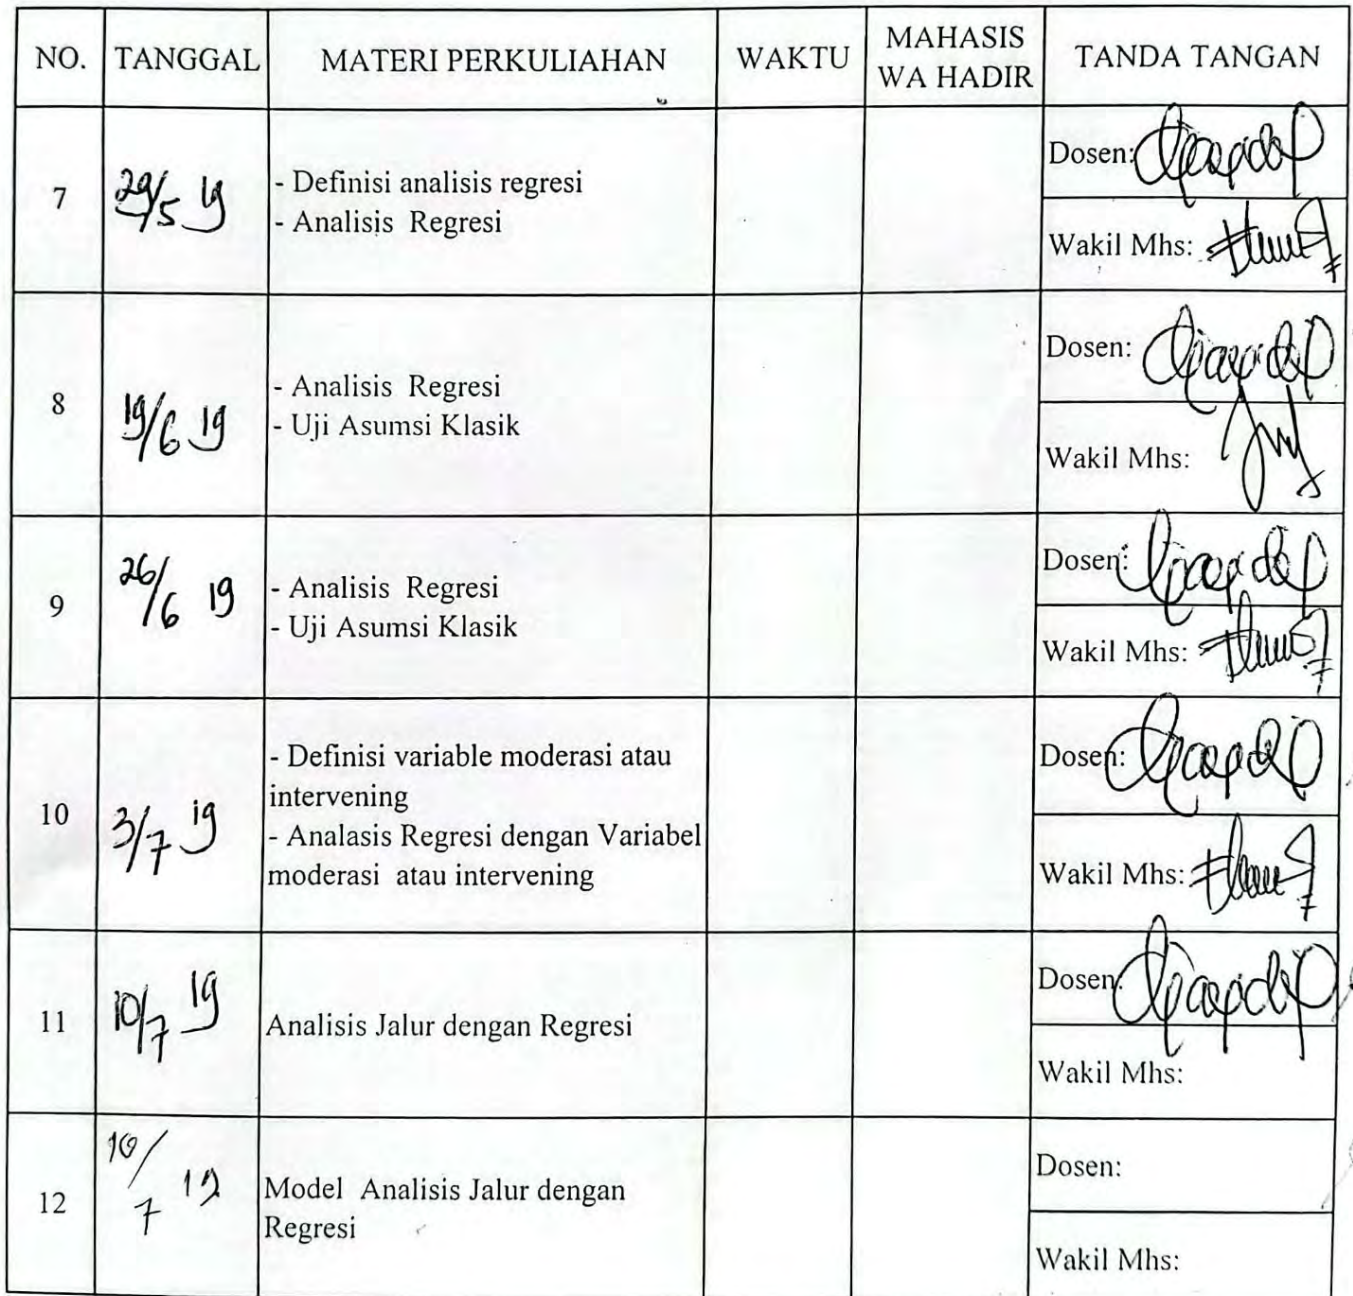 NO. TANGGAL MATERI PERKULIAHAN WAKTU MAHASIS TANDA TANGAN
WA HADIR
7 29/5 19 - Definisi analisis regresi
- Analisis Regresi
Dosen:
Wakil Mhs:
8 19/6 19 - Analisis Regresi
- Uji Asumsi Klasik
Dosen:
Wakil Mhs:
9 26/6 19 - Analisis Regresi
- Uji Asumsi Klasik
Dosen:
Wakil Mhs:
10 3/7 19 - Definisi variable moderasi atau
intervening
- Analasis Regresi dengan Variabel
moderasi atau intervening
Dosen:
Wakil Mhs:
11 10/7 19 Analisis Jalur dengan Regresi
Dosen:
Wakil Mhs:
12 10/7 19 Model Analisis Jalur dengan
Regresi
Dosen:
Wakil Mhs: